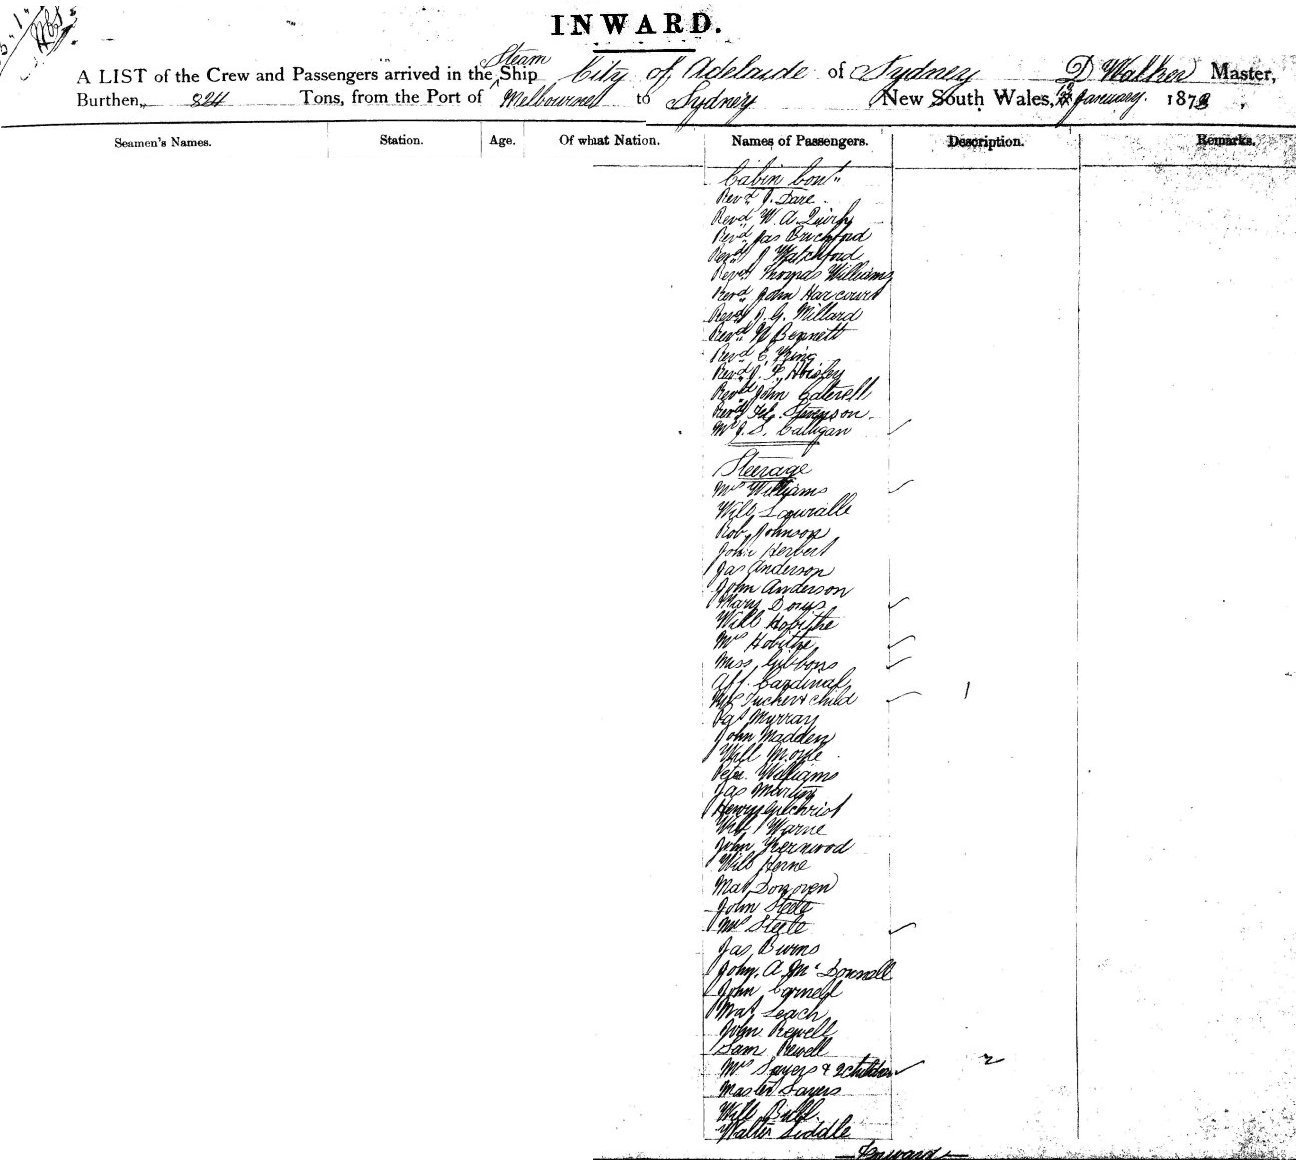 INWARD.
Steam
A LIST of the Crew and Passengers arrived in the Ship City of Adelaide of Sydney D Walker Master,
Burthen, 824 Tons, from the Port of Melbourne to Sydney New South Wales, January. 187
Seamen's Names. Station. Age. Of what Nation. Names of Passengers. Description. Remarks.
Cabin Con
Revd J. Dare.
Revd W. A. Quick
Revd Jas Bickford
Revd J Watchford
Revd Thomas Williams
Revd John Harcourt
Revd J. G. Millard
Revd W Bennett
Revd C King
Revd J. F. Horsley
Revd John Catterell
Revd Stevenson.
Mr J. S. Calligan
Steerage
Mrs Williams
Will Lauralle
Rob Johnson
John Herbert
Jas Anderson
John Anderson
Mary Doris
Will Hobithe
Mrs Hobithe
Miss Gibbons
Alf. Cardinal
Mrs Tucker & child 1
Murray
John Madden
Will Moyle
Peter Williams
Jas Martin
Henry Gilchrist
Will Warne
John Kernwood
Will Horne
Mat Donoven
John Steele
Mrs Steele
Jas Burns
John A McDonnell
John Cornell
Mat Leach
John Rewell
Sam Rewell
Mrs Sayers & 2 children 2
Master Sayers
Will Bull.
Walter Liddle
Forward